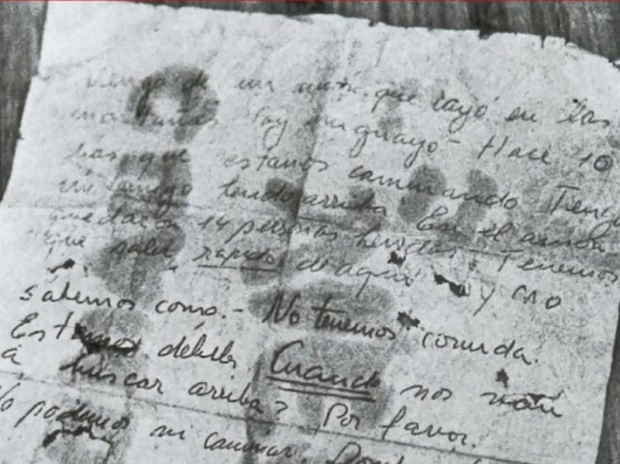 Vengo de un avión que cayó en las
montañas Soy uruguayo - Hace 10
dias que estamos caminando Tengo
un amigo herido arriba En el avion
quedaron 14 personas heridas. Tenemos
que salir rapido de aqui y no
sabemos como. - No tenemos comida.
Estamos debiles Cuando nos van
a buscar arriba? Por favor.
No podemos ni caminar.